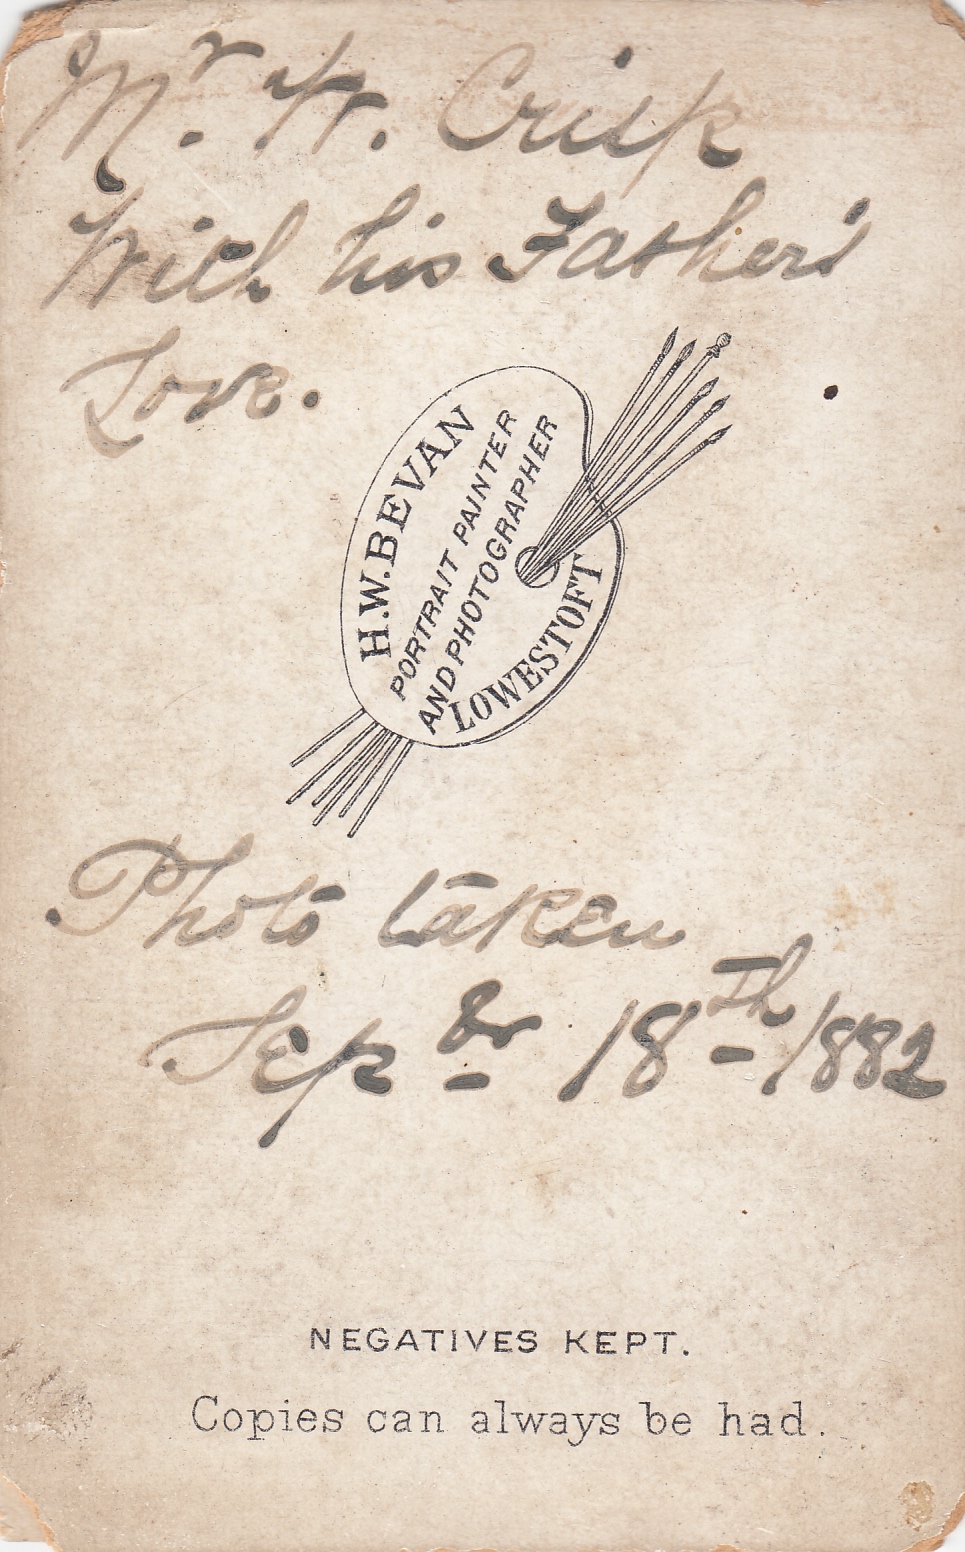 Mr. W. Crisp
With his Father's
Love.
H.W.BEVAN
PORTRAIT PAINTER
AND PHOTOGRAPHER
LOWESTOFT
Photo taken
Sepbr 18th 1882
NEGATIVES KEPT.
Copies can always be had.